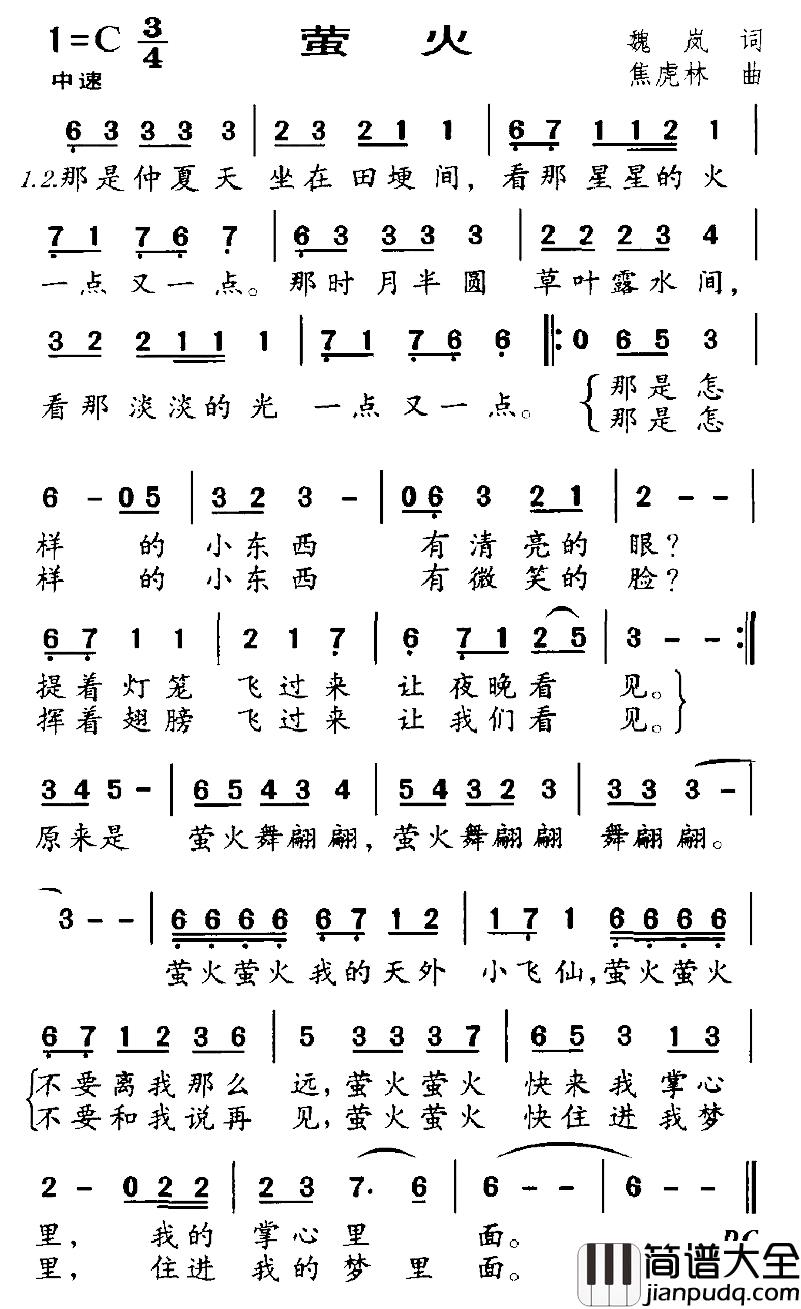 1=C 3/4 萤火 魏岚 词
中速 焦虎林 曲
6 3 3 3 3 | 2 3 2 1 1 | 6 7 1 1 2 1 |
1.2.那是仲夏天 坐在田埂间，看那星星的火
7 1 7 6 7 | 6 3 3 3 3 | 2 2 2 3 4 |
一点又一点。那时月半圆 草叶露水间，
3 2 2 1 1 1 | 7 1 7 6 6 ‖: 0 6 5 3 |
看那淡淡的光 一点又一点。 {那是怎
那是怎
6 - 0 5 | 3 2 3 - | 0 6 3 2 1 | 2 - - |
样 的 小东西 有清亮的眼？
样 的 小东西 有微笑的脸？
6 7 1 1 | 2 1 7 | 6 7 1 2 5 | 3 - - :‖
提着灯笼 飞过来 让夜晚看 见。}
挥着翅膀 飞过来 让我们看 见。
3 4 5 - | 6 5 4 3 4 | 5 4 3 2 3 | 3 3 3 - |
原来是 萤火舞翩翩，萤火舞翩翩 舞翩翩。
3 - - | 6 6 6 6 6 7 1 2 | 1 7 1 6 6 6 6 |
萤火萤火我的天外 小飞仙，萤火萤火
6 7 1 2 3 6 | 5 3 3 3 7 | 6 5 3 1 3 |
{不要离我那么 远，萤火萤火 快来我掌心
不要和我说再 见，萤火萤火 快住进我梦
2 - 0 2 2 | 2 3 7. 6 | 6 - - | 6 - - ‖
里， 我的 掌心里 面。 D.C.
里， 住进 我的梦里面。
简谱大全
jianpudq.com